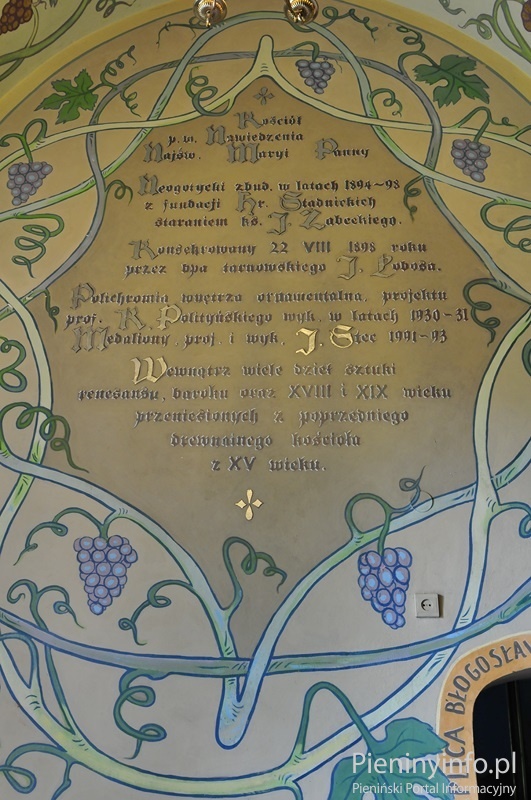 Kościół
p. w. Nawiedzenia
Najśw. Maryi Panny
Neogotycki zbud. w latach 1894-98
z fundacji Hr. Stadnickich
staraniem ks. J. Zabeckiego.
Konsekrowany 22 VIII 1898 roku
przez bpa tarnowskiego J. Łobosa.
Polichromia wnętrza ornamentalna, projektu
prof. K. Polityńskiego wyk. w latach 1930-31
Medaliony, proj. i wyk. J. Stec 1991-93
Wewnątrz wiele dzieł sztuki
renesansu, baroku oraz XVIII i XIX wieku
przeniesionych z poprzedniego
drewnianego kościoła
z XV wieku.
CA BŁOGOSŁAW
Pieninyinfo.pl
Pieniński Portal Informacyjny